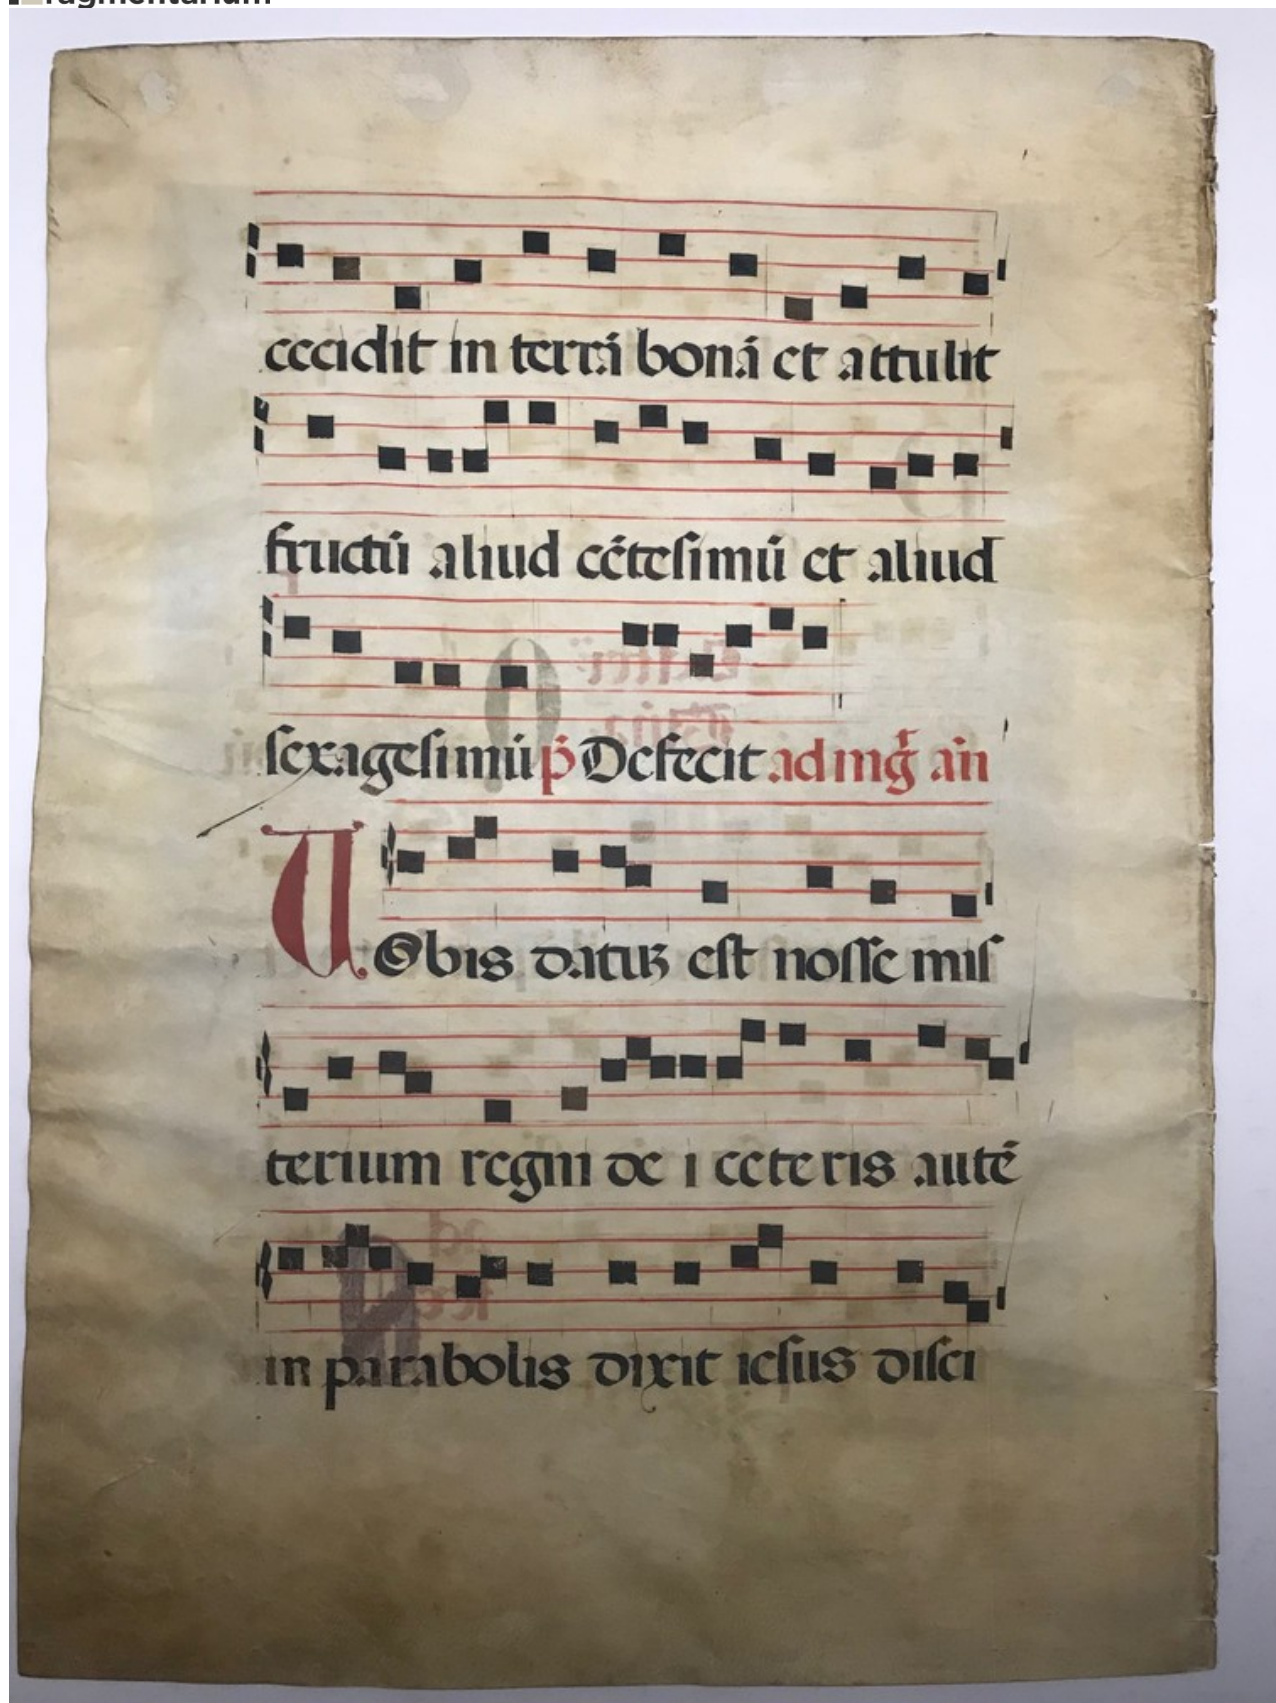 ragmentarium
cecidit in terrā bonā et attulit
fructū aliud cētesimū et aliud
sexagesimū p̄ Defecit ad mḡ añ
Uobis datuꝫ est nosse mis
terium regni dei ceteris autē
in parabolis dixit iesus disci